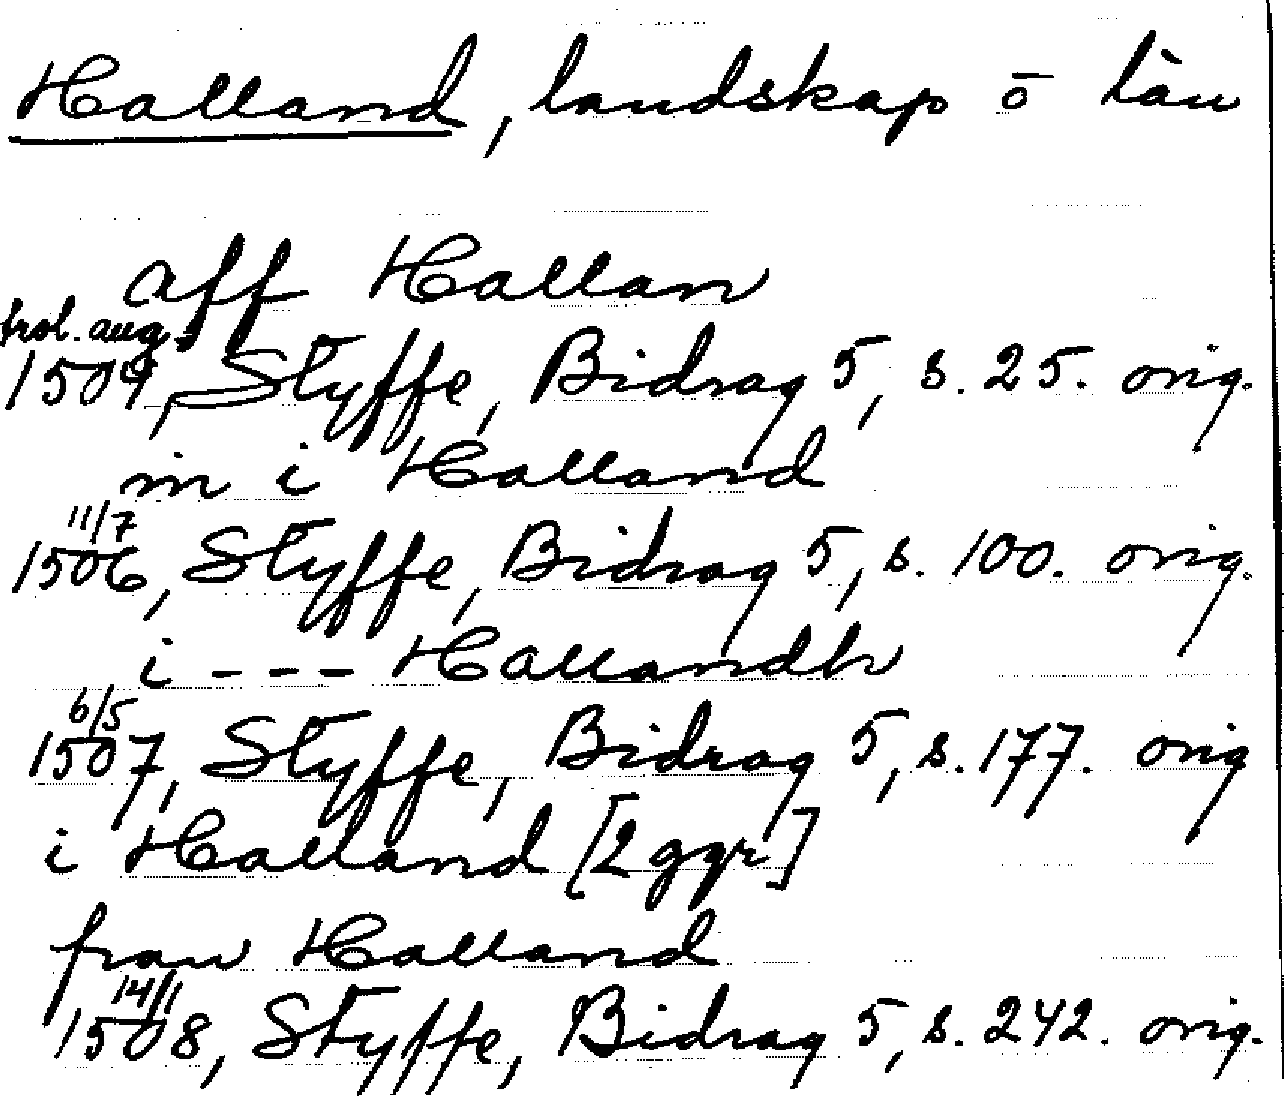 Halland, landskap ō län
aff Hallan
trol. aug.
1509, Styffe, Bidrag 5, s. 25. orig.
in i Halland
11/7
1506, Styffe, Bidrag 5, s. 100. orig.
i --- Hallandh
6/5
1507, Styffe, Bidrag 5, s. 177. orig
i Halland [2 ggr]
fran Halland
14/1
1508, Styffe, Bidrag 5, s. 242. orig.